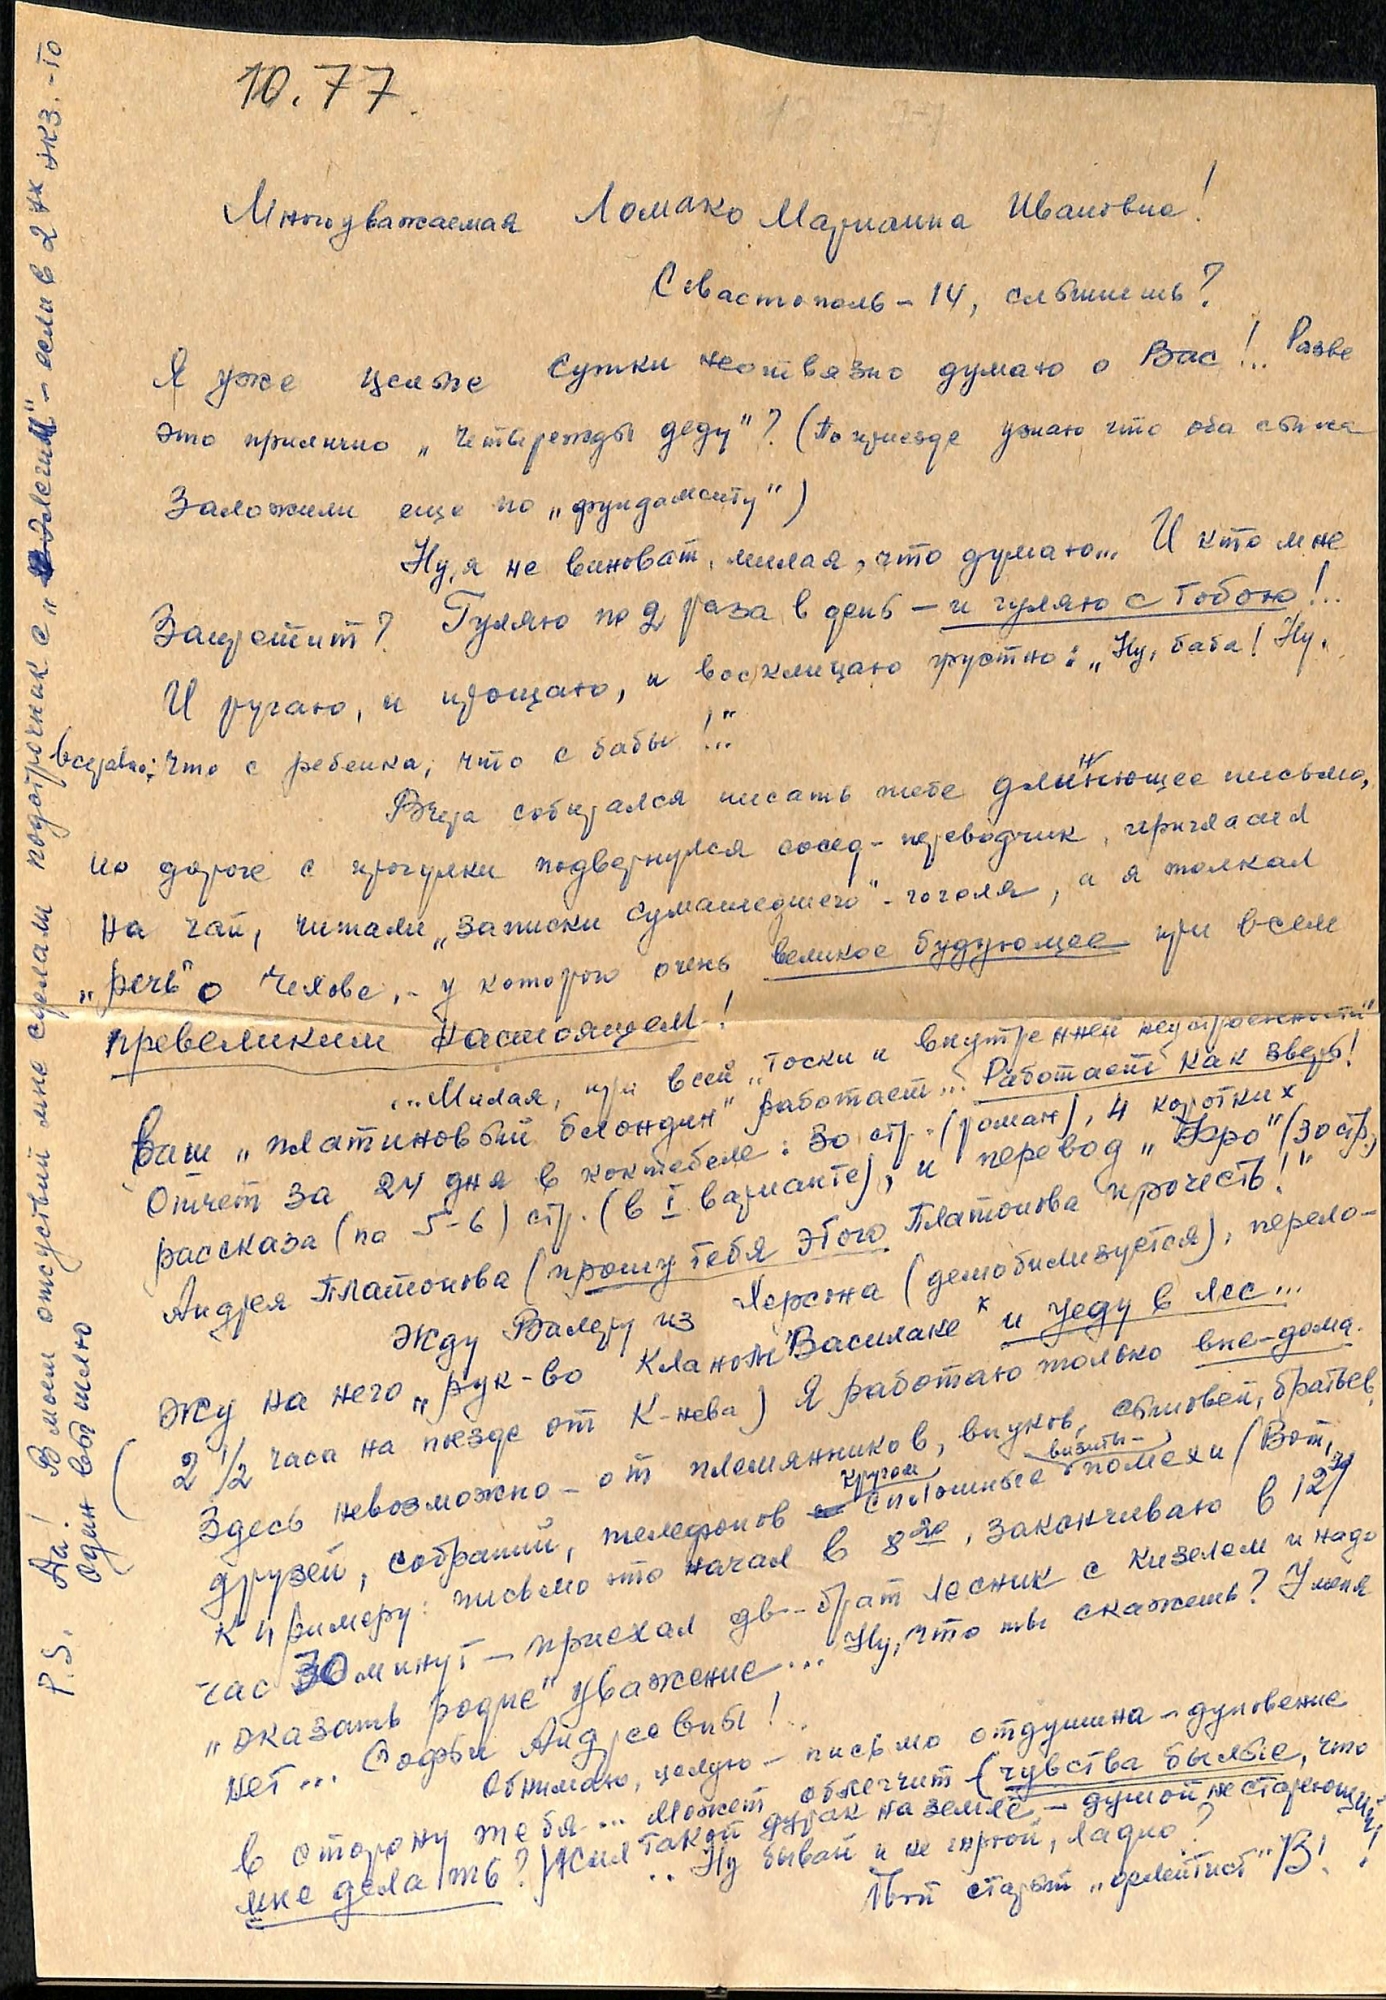 10.77.
Многоуважаемая Ломако Марианна Ивановна!
Севастополь – 14, слышишь?
Я уже целые сутки неотвязно думаю о Вас!.. Разве
это прилично „четырежды деду"? (По приезде узнаю что оба сына
заложили еще по „фундаменту")
Ну, я не виноват, милая, что думаю... И кто мне
запретит? Гуляю по 2 раза в день – и гуляю с тобою!..
И ругаю, и прощаю, и восклицаю грустно: „Ну, баба! Ну,
всеравно: что с ребенка, что с бабы!.."
Вчера собирался писать тебе длиннющее письмо,
но дороге с прогулки подвернулся сосед-переводчик, пригласил
на чай, читали „Записки сумашедшего" – Гоголя, а я толкал
„речь" о Чехове, – у которого очень великое будующее при всем
превеликим настоящем!
...Милая, при всей „тоски и внутренней неустроенности"
Ваш „платиновый блондин" работает... Работает как зверь!
Отчет за 24 дня в Коктебеле: 30 стр. (роман), 4 коротких
рассказа (по 5-6) стр. (в I варианте), и перевод „Фро" (30 стр.)
Андрея Платонова (прошу тебя этого Платонова прочесть!"
Жду Валеру из Херсона (демобилизуется), перело-
жу на него „рук-во кланом Василаке" и уеду в лес...
(2 1/2 часа на поезде от К-нева) Я работаю только вне-дома.
Здесь невозможно – от племянников, внуков, сыновей, братьев,
друзей, собраний, телефонов кругом сплошные визиты – помехи (Вот,
к примеру: письмо это начал в 8 20, заканчиваю в 12 30/
час 30 минут – приехал дв-брат лесник с кизелем и надо
„оказать родне" уважение... Ну, что ты скажешь? У меня
нет... Софьи Андреевны!..
Обнимаю, целую – письмо отдушина – дуновение
в сторону тебя... Может облегчит (чувства былые, что
мне делать?) Жил такой дурак на земле – душой не стареющий!
.. Ну бывай и не хнюй, ладно?
Твой старый „флейтист" В!
P.S. Аа! В моем отсуствии мне сделали подстрочник с „Элегии" – если в 2-ух экз. – то
один вышлю